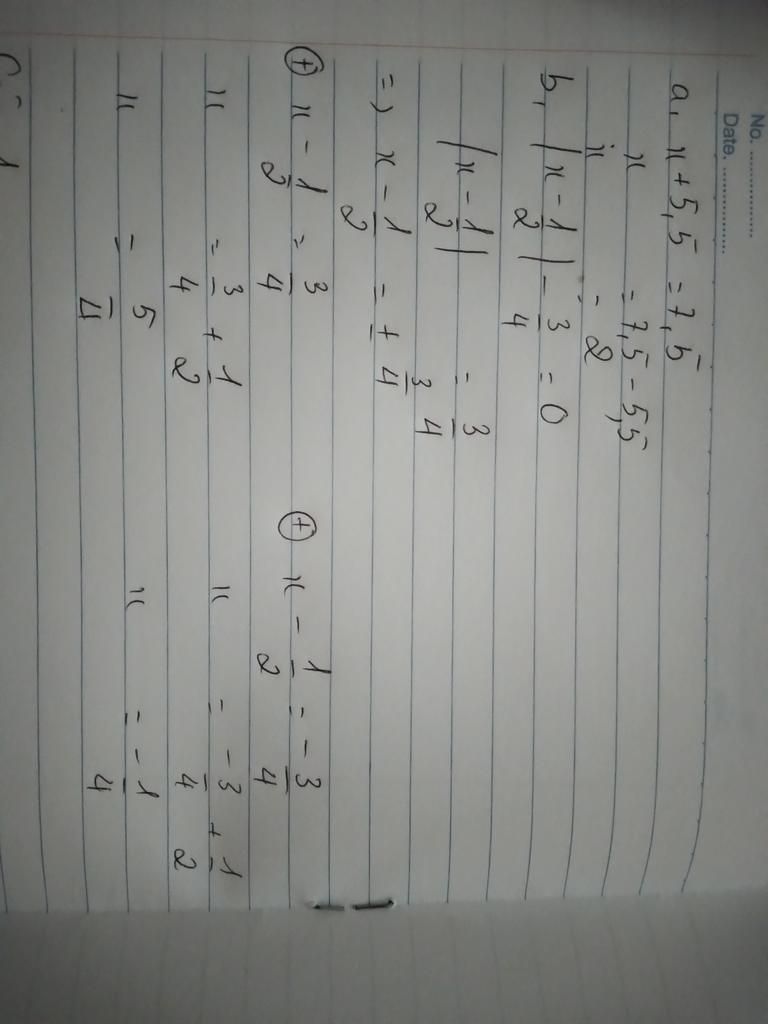 No. ................
Date. ................
a, x + 5,5 = 7,5
x = 7,5 - 5,5
x = 2
b, |x - 1/2| - 3/4 = 0
|x - 1/2| = 3/4
=> x - 1/2 = ± 3/4
⊕ x - 1/2 = 3/4 ⊕ x - 1/2 = -3/4
x = 3/4 + 1/2 x = -3/4 + 1/2
x = 5/4 x = -1/4